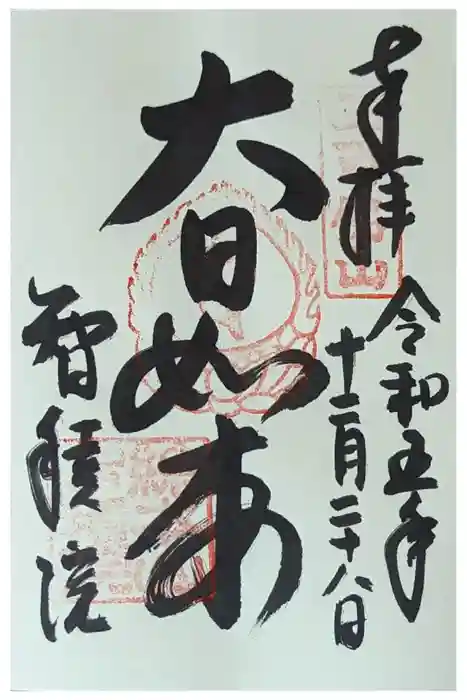 奉拝
令和五年
十二月二十八日
大日如来
智積院